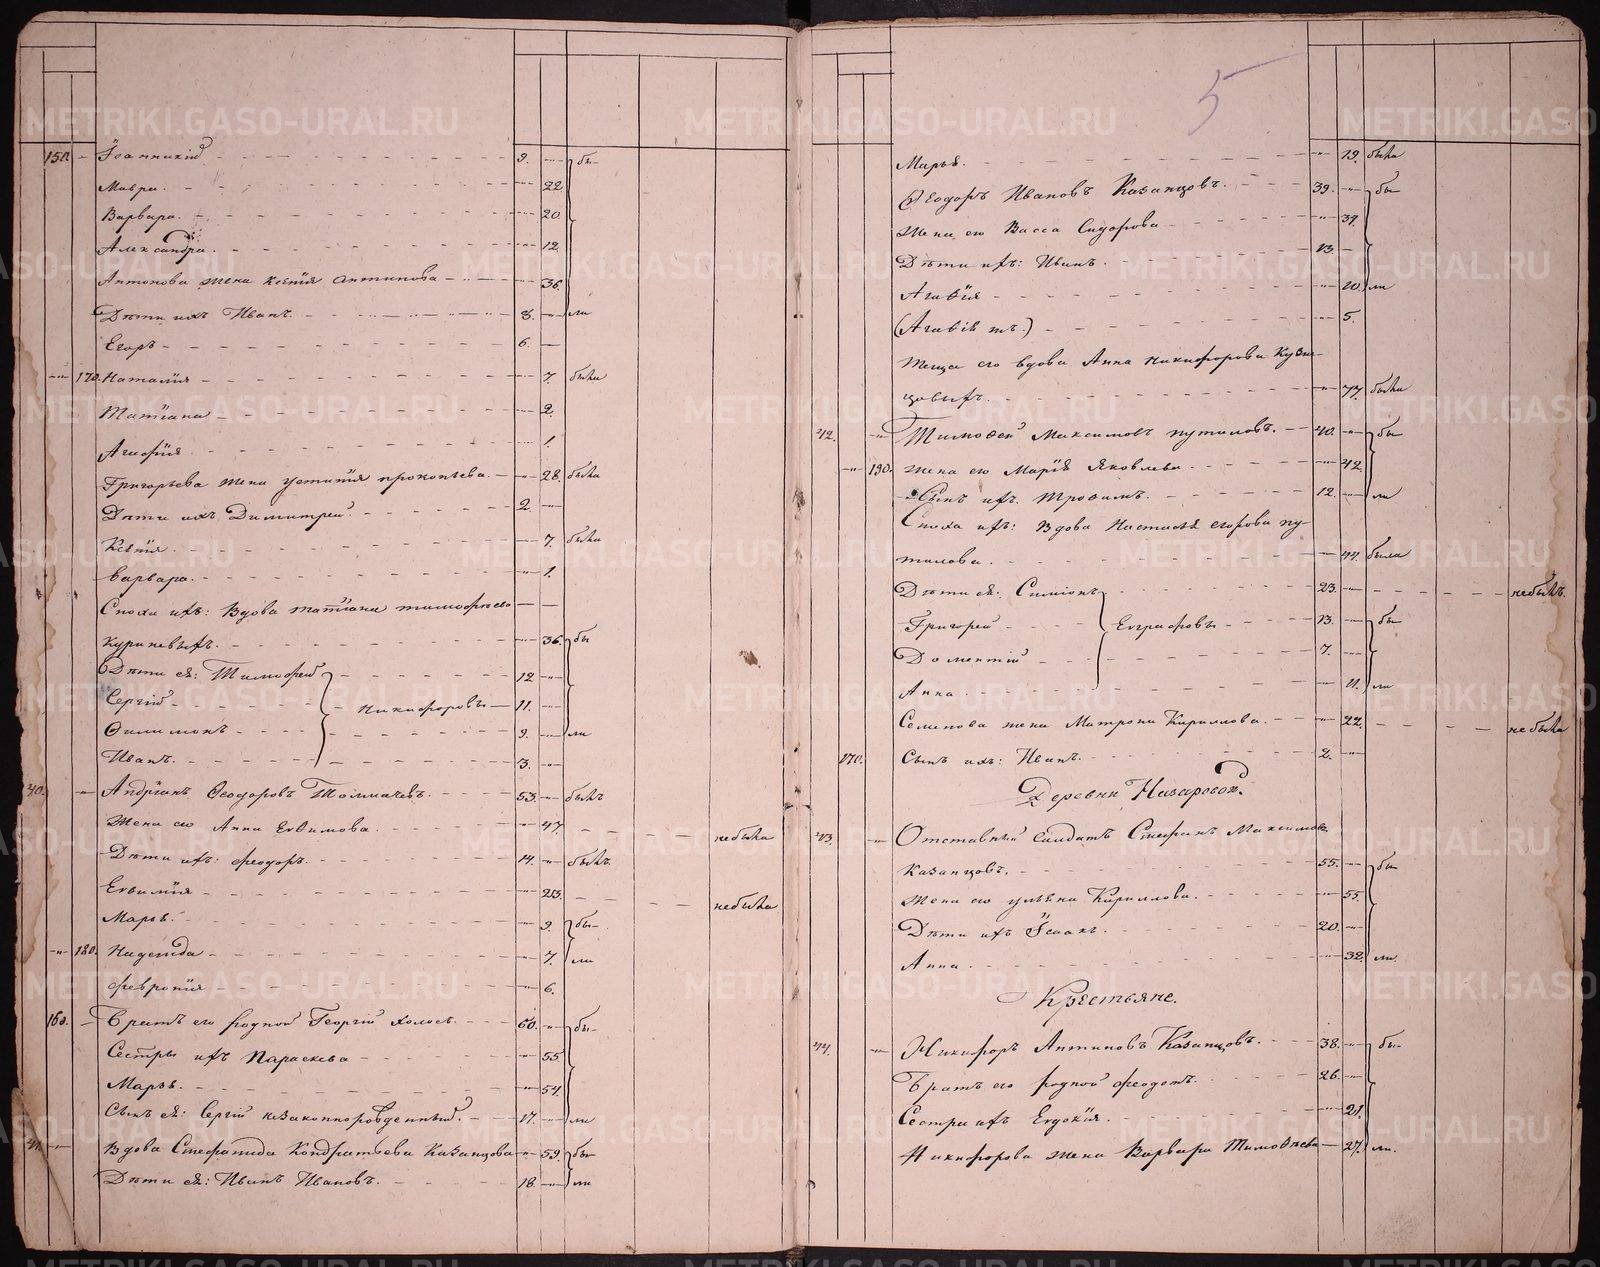 150. Іоанникій 9. бы-
Мавра. 22
Варвара. 20.
Александра. 12.
Антонова жена Ксенія Антипова 36.
Дѣти ихъ Иванъ. 8. ли
Егоръ 6.
170. Наталія 7. была
Татіана 2.
Агафія 1.
Григорьева жена Устинія Прокопьева. 28. была
Дѣти ихъ Димитрей. 2.
Ксенія. 7. была
Варвара. 1.
Сноха ихъ: Вдова Татіана Тимофѣева
36. бы
Дѣти ея: Тимофей 12
Сергій Никифоровы 11.
Филимонъ 9. ли
Иванъ. 3.
40. Андріанъ Ѳеодоровъ Толмачевъ. 53. былъ
Жена его Анна Евѳимова. 47. небыла
Дѣти ихъ: Феодоръ. 14. былъ.
Евѳимія 23. небыла
Марья. 9. бы-
180. Надежда 7. ли
Февронія 6.
160. Братъ его родной Георгій холостъ. 60. бы-
Сестры ихъ Параскева 55
Марья. 54.
Сынъ ея: Сергій незаконнорожденный. 17. ли
41. Вдова Стефанида Кондратьева Казанцова 59. бы-
Дѣти ея: Иванъ Ивановъ. 18. ли
5
Марья. 19. была
Ѳеодоръ Ивановъ Казанцовъ. 39. бы
Жена его Васса Сидорова 39.
Дѣти ихъ: Иванъ. 13.
Агафія 10. ли
5.
Теща его вдова Анна Никифорова Кузне-
цовыхъ. 77. была
42. Тимофей Максимовъ Путиловъ. 40. бы
190. Жена его Марія Яковлева. 42.
Сынъ ихъ. Трофимъ. 12. ли
Сноха ихъ: Вдова Настасья Егорова Пу-
тилова. 44. была
Дѣти ея: Симіонъ 23. небылъ.
Григорей Евграфовы 13. бы
Доментій 7.
Анна. 11. ли
Семенова жена Матрона Кириллова. 22. не была
170. Сынъ ихъ: Иванъ. 2.
Деревни Назаровой.
43. Отставный Солдатъ Стефанъ Максимовъ
Казанцовъ. 55. бы
Жена его Ульяна Кириллова. 55.
Дѣти ихъ Ісаакъ. 20.
Анна. 32. ли.
Крестьяне.
44. Никифоръ Антиповъ Казанцовъ. 38. бы-
Братъ его родной Феодотъ. 26.
Сестра ихъ Евдокія. 21.
Никифорова жена Варвара Тимоѳѣева 27. ли.
METRIKI.GASO-URAL.RU